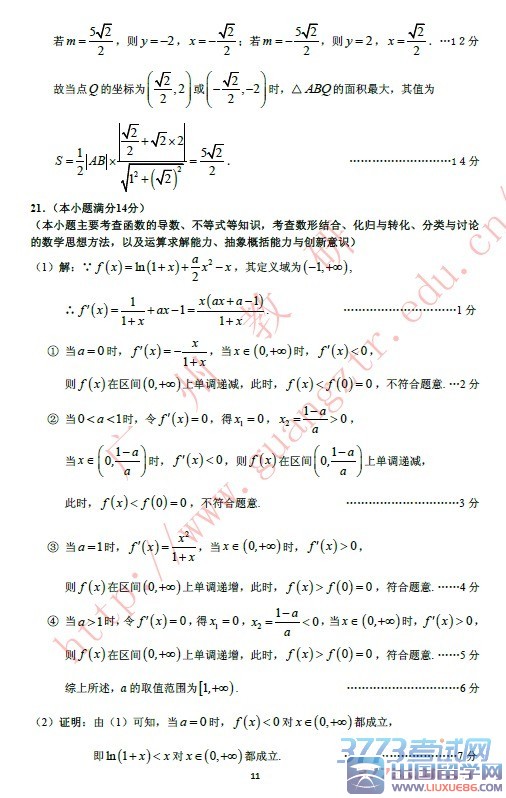 若 m = 5√2/2，则 y = −2，x = −√2/2；若 m = −5√2/2，则 y = 2，x = √2/2．…12分
故当点 Q 的坐标为 (√2/2, 2) 或 (−√2/2, −2) 时，△ABQ 的面积最大，其值为
S = 1/2|AB| × |√2/2 + √2×2| / √(1² + (√2)²) = 5√2/2．…………………………14分
21．（本小题满分14分）
（本小题主要考查函数的导数、不等式等知识，考查数形结合、化归与转化、分类与讨论
的数学思想方法，以及运算求解能力、抽象概括能力与创新意识）
（1）解：∵ f(x) = ln(1+x) + a/2 x² − x，其定义域为 (−1,+∞)，
∴ f′(x) = 1/(1+x) + ax − 1 = x(ax+a−1)/(1+x)．…………………………1分
① 当 a = 0 时，f′(x) = −x/(1+x)，当 x∈(0,+∞) 时，f′(x) < 0，
则 f(x) 在区间 (0,+∞) 上单调递减，此时，f(x) < f(0) = 0，不符合题意．…2分
② 当 0 < a < 1 时，令 f′(x) = 0，得 x₁ = 0，x₂ = (1−a)/a > 0，
当 x∈(0, (1−a)/a) 时，f′(x) < 0，则 f(x) 在区间 (0, (1−a)/a) 上单调递减，
此时，f(x) < f(0) = 0，不符合题意．…………………………3分
③ 当 a = 1 时，f′(x) = x²/(1+x)，当 x∈(0,+∞) 时，f′(x) > 0，
则 f(x) 在区间 (0,+∞) 上单调递增，此时，f(x) > f(0) = 0，符合题意．……4分
④ 当 a > 1 时，令 f′(x) = 0，得 x₁ = 0，x₂ = (1−a)/a < 0，当 x∈(0,+∞) 时，f′(x) > 0，
则 f(x) 在区间 (0,+∞) 上单调递增，此时，f(x) > f(0) = 0，符合题意．……5分
综上所述，a 的取值范围为 [1,+∞)．…………………………6分
（2）证明：由（1）可知，当 a = 0 时，f(x) < 0 对 x∈(0,+∞) 都成立，
即 ln(1+x) < x 对 x∈(0,+∞) 都成立．…………………7分
11
广州教研
http://www.guangztr.edu.cn/
3773考试网
出国留学网
www.liuxue86.com